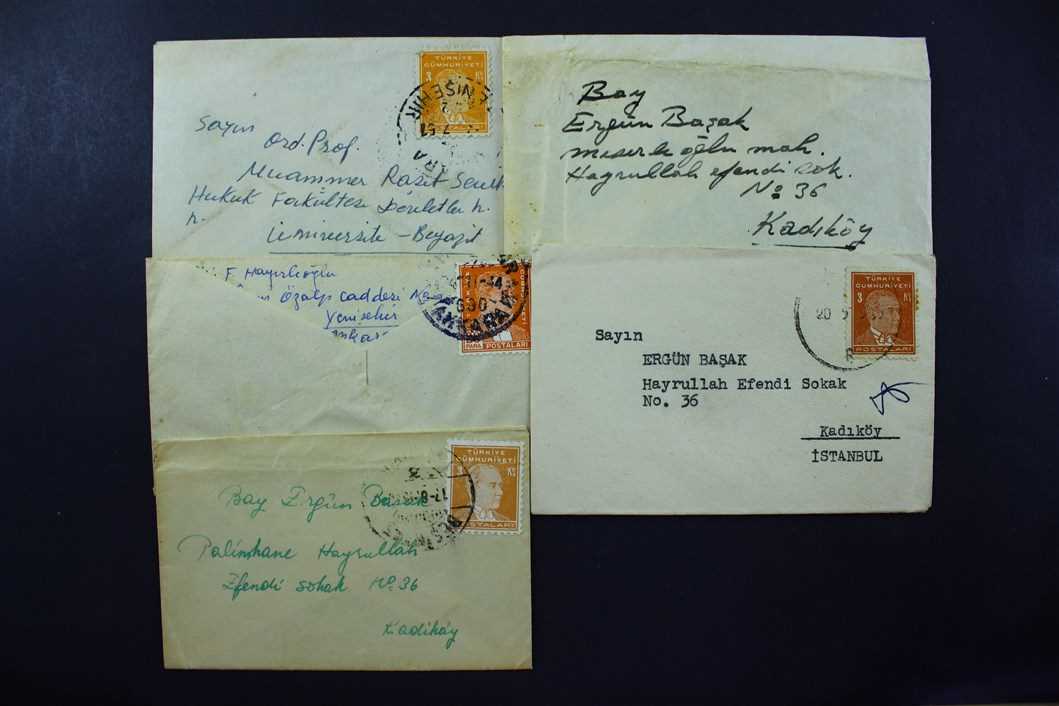 TÜRKİYE
CÜMHURİYETİ
3 Kş
YENİŞEHİR
Sayın
Ord. Prof.
Muammer Raşit
Hukuk Fakültesi
Üniversite - Beyazıt
Bay
Ergün Başak
mısırlı oğlu mah.
Hayrullah efendi sok.
No 36
Kadıköy
F. Hayırlıoğlu
Özalp caddesi
Yenişehir
Ankara
ANKARA
PARA POSTALARI
TÜRKİYE
CÜMHURİYETİ
3 Kş
POSTALARI
20
Sayın
ERGÜN BAŞAK
Hayrullah Efendi Sokak
No. 36
Kadıköy
İSTANBUL
TÜRKİYE
CÜMHURİYETİ
3 Kş
POSTALARI
17-8
Bay Ergün Başak
Palimhane Hayrullah
Efendi sokak No. 36
Kadıköy